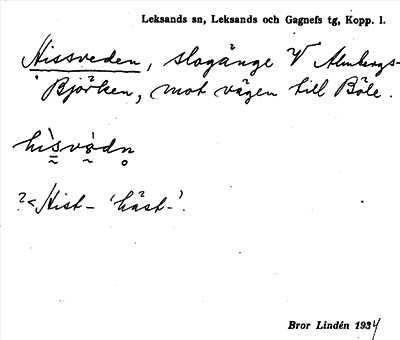 Leksands sn, Leksands och Gagnefs tg, Kopp. l.
Hissveden, slogänge V Almbergs-
Björken, mot vägen till Böle.
hìsvòdn
?< Hist- 'häst-'.
Bror Lindén 1934